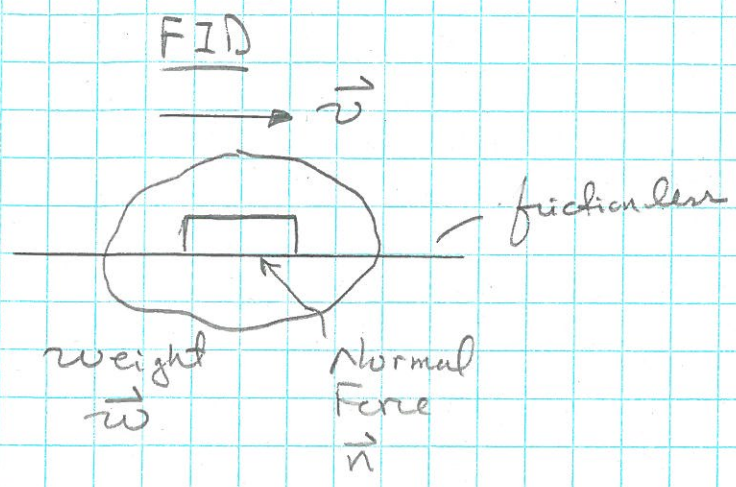 FID
v⃗
frictionless
weight
w⃗
Normal
Force
n⃗